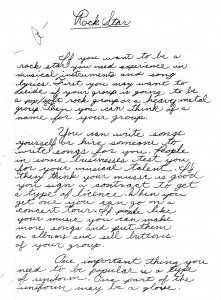 Rock Star
If you want to be a
rock star you need experience in
musical instruments and song
lyrics. First you may want to
decide if your group is going to be
a rock group or a heavy metal
group then you can think of a
name for your group.
You can write songs
yourself or hire someone to
write songs for you. People
in some businesses test you
for your musical talent. If
they think your music is good
you sign a contract to get
a type of licence. When you
get one you can go on a
concert tour. If people like
your music you can make
more songs and put them
on albums and sell buttons
of your group.
One important thing you
need to be popular is a type
of uniform. One part of the
uniform may be a glove.